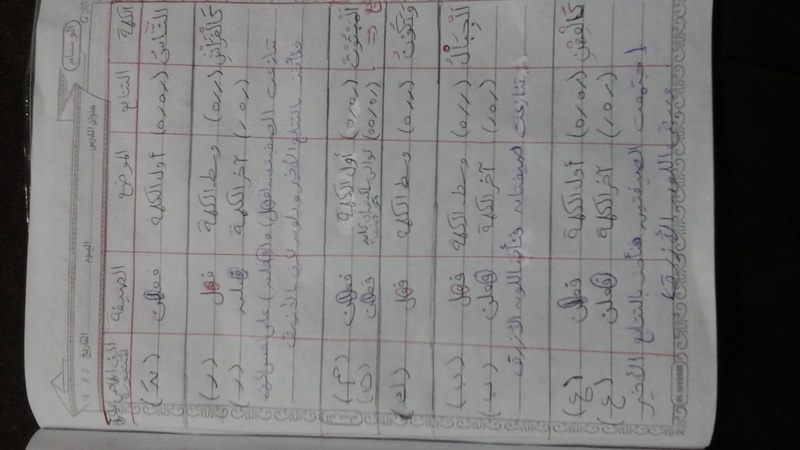 الوسام
عنوان الدرس اليوم التاريخ / / ١٤
الكلمة التتابع الموضع الصيغة الحرف الخاص
النَّاسُ (/٥/٥) أول الكلمة فعلن
كَالْفَرَاشِ (///٥) وسط الكلمة فعل (ر)
(/٥/) آخر الكلمة (ر)
تنازعت الصيغتين (فعل) و(فعلن) على نفس الحرف
فنأخذ بالتتابع الأخير ويلون الحرف بالأزرق
الْمَبْثُوثْ (/٥/٥) أول الكلمة فعلن (م)
(/٥/٥٥) توالي ساكنين فعلن (ث)
وَتَكُونُ (///٥) وسط الكلمة فعل (ك)
الْجِبَالُ (///٥) وسط الكلمة فعل (ب)
(/٥/) آخر الكلمة فعلن (ب)
تنازعت صيغتان فنأخذ اللون الأزرق
كَالْعِهْنِ (/٥/٥) أول الكلمة فعلن (ع)
(/٥/) آخر الكلمة فعلن (ع)
اجتمعت الصيغتين فنأخذ بالتتابع الأخير
اللون الأزرق